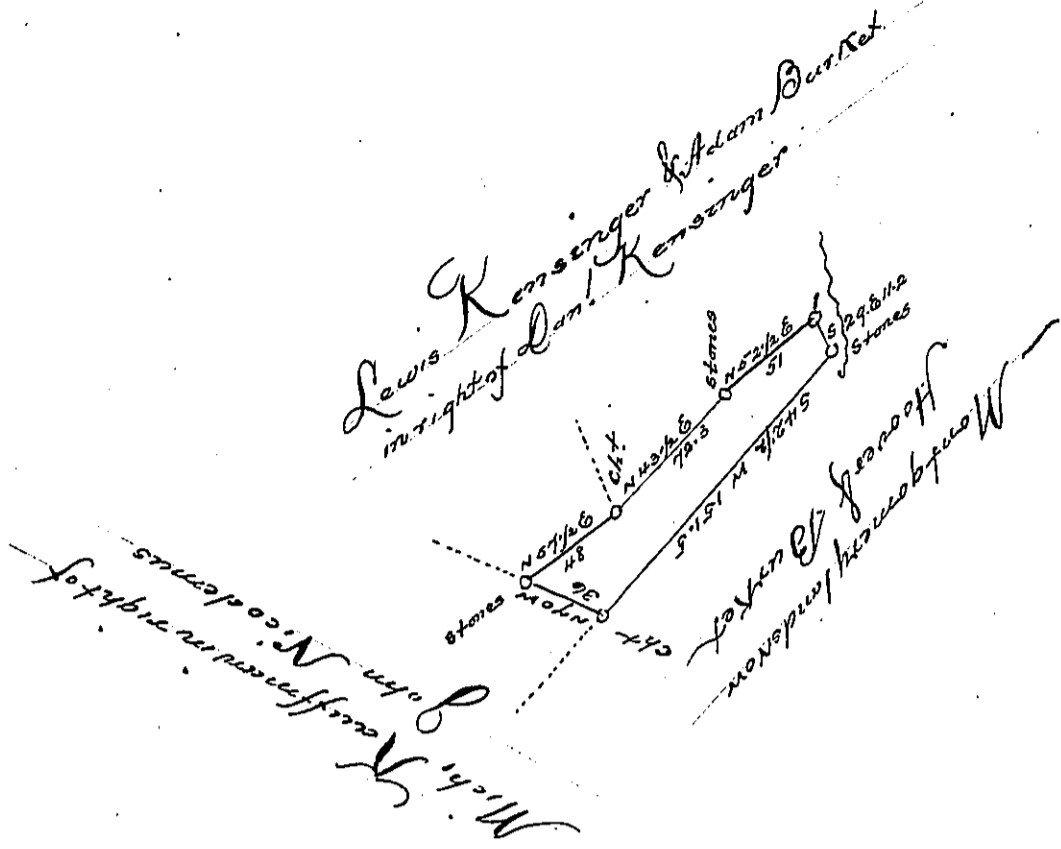 Lewis Kensinger & Adam Burket
in right of Danl. Kensinger
stones
N 52 1/2 E
51
S 29. E 11.2
stones
ch.x
N 43 1/2 E
72.3
S 42 1/2 W 151.5
N 57 1/2 E
48
stones
N 70 W
36
chx
Montgomery lands now
Hoover & Burket
Mich. Kauffman in right of
John Nicodemus